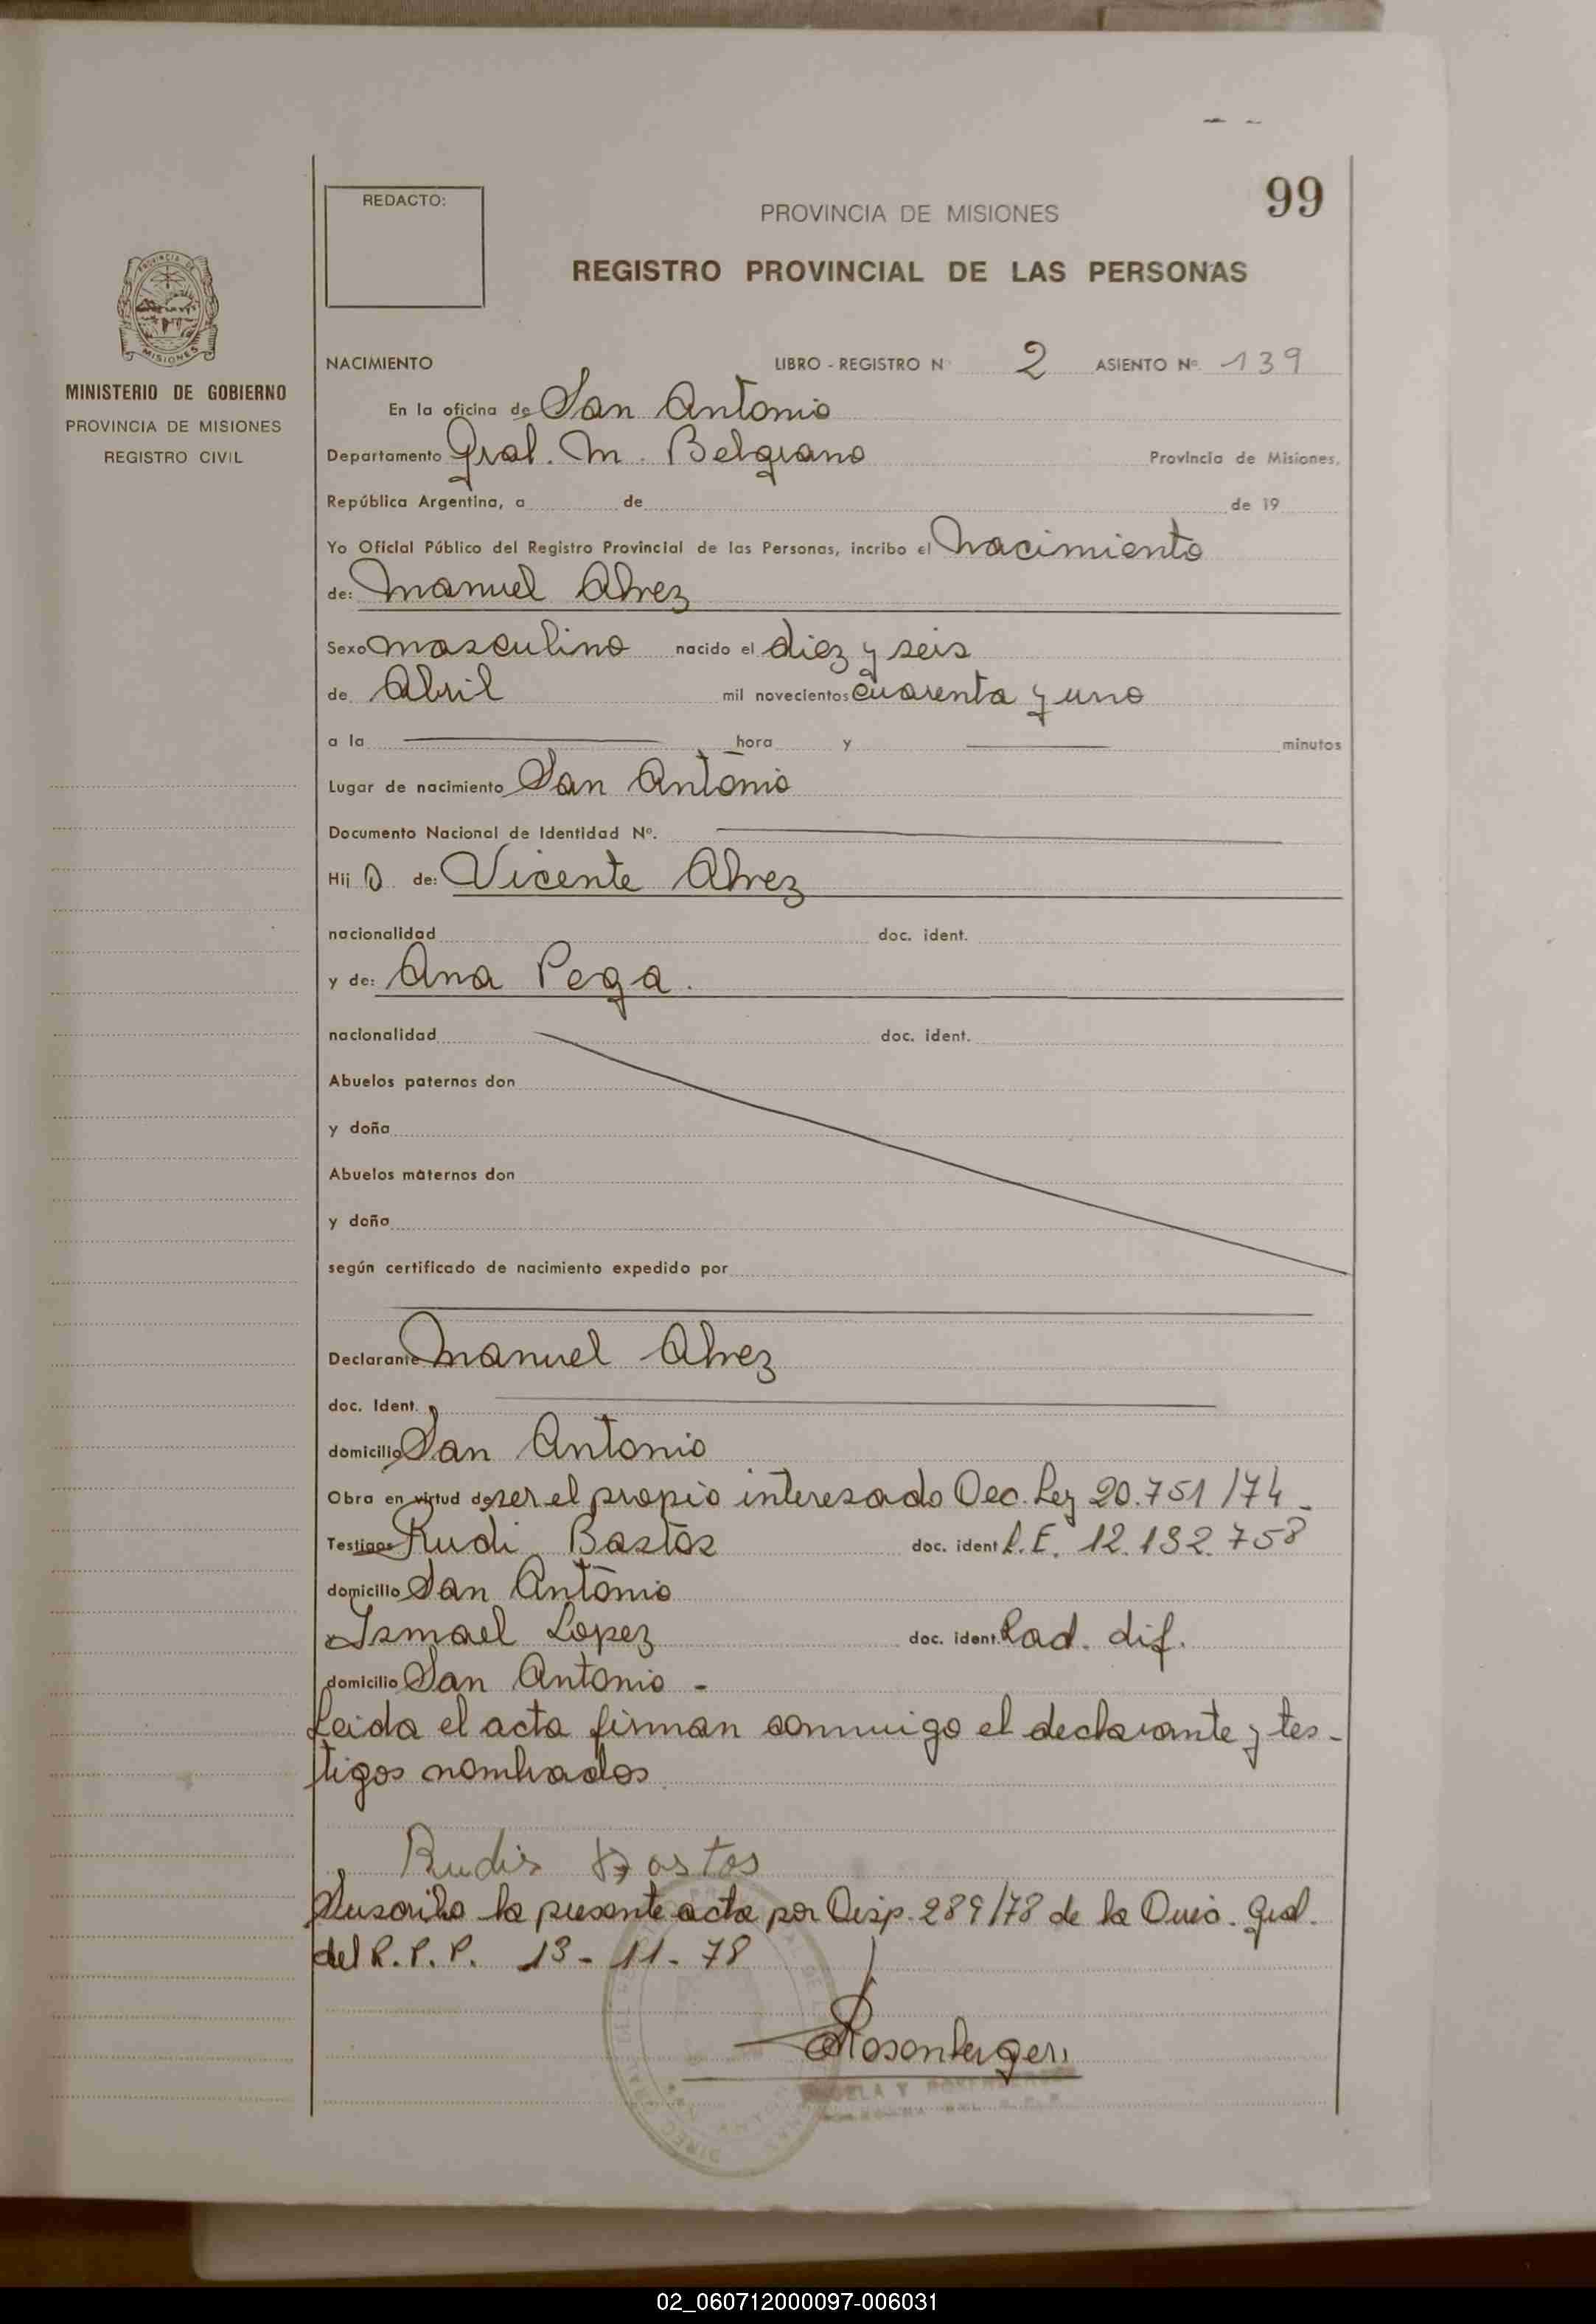 99
REDACTO:
PROVINCIA DE MISIONES
REGISTRO PROVINCIAL DE LAS PERSONAS
MISIONES
MINISTERIO DE GOBIERNO
PROVINCIA DE MISIONES
REGISTRO CIVIL
NACIMIENTO LIBRO - REGISTRO Nº 2 ASIENTO Nº 139
En la oficina de San Antonio
Departamento Gral. M. Belgrano Provincia de Misiones,
República Argentina, a de de 19
Yo Oficial Público del Registro Provincial de las Personas, incribo el Nacimiento
de: Manuel Alvez
Sexo masculino nacido el diez y seis
de Abril mil novecientos cuarenta y uno
a la hora y minutos
Lugar de nacimiento San Antonio
Documento Nacional de Identidad Nº.
Hij o de: Vicente Alvez
nacionalidad doc. ident.
y de: Ana Pega.
nacionalidad doc. ident.
Abuelos paternos don
y doña
Abuelos maternos don
y doña
según certificado de nacimiento expedido por
Declarante Manuel Alvez
doc. Ident.
domicilio San Antonio
Obra en virtud de ser el propio interesado Dec. Ley 20.751/74 -
Testigos Rudi Bastos doc. ident L.E. 12.132.758
domicilio San Antonio
Ismael Lopez doc. ident. Cad. dif.
domicilio San Antonio -
Leida el acta firman conmigo el declarante y tes-
tigos nombrados
Rudis Bastos
Suscribo la presente acta por Disp. 289/78 de la Direc. Gral.
del R.P.P. 13-11-78
Rosenberger
02_060712000097-006031